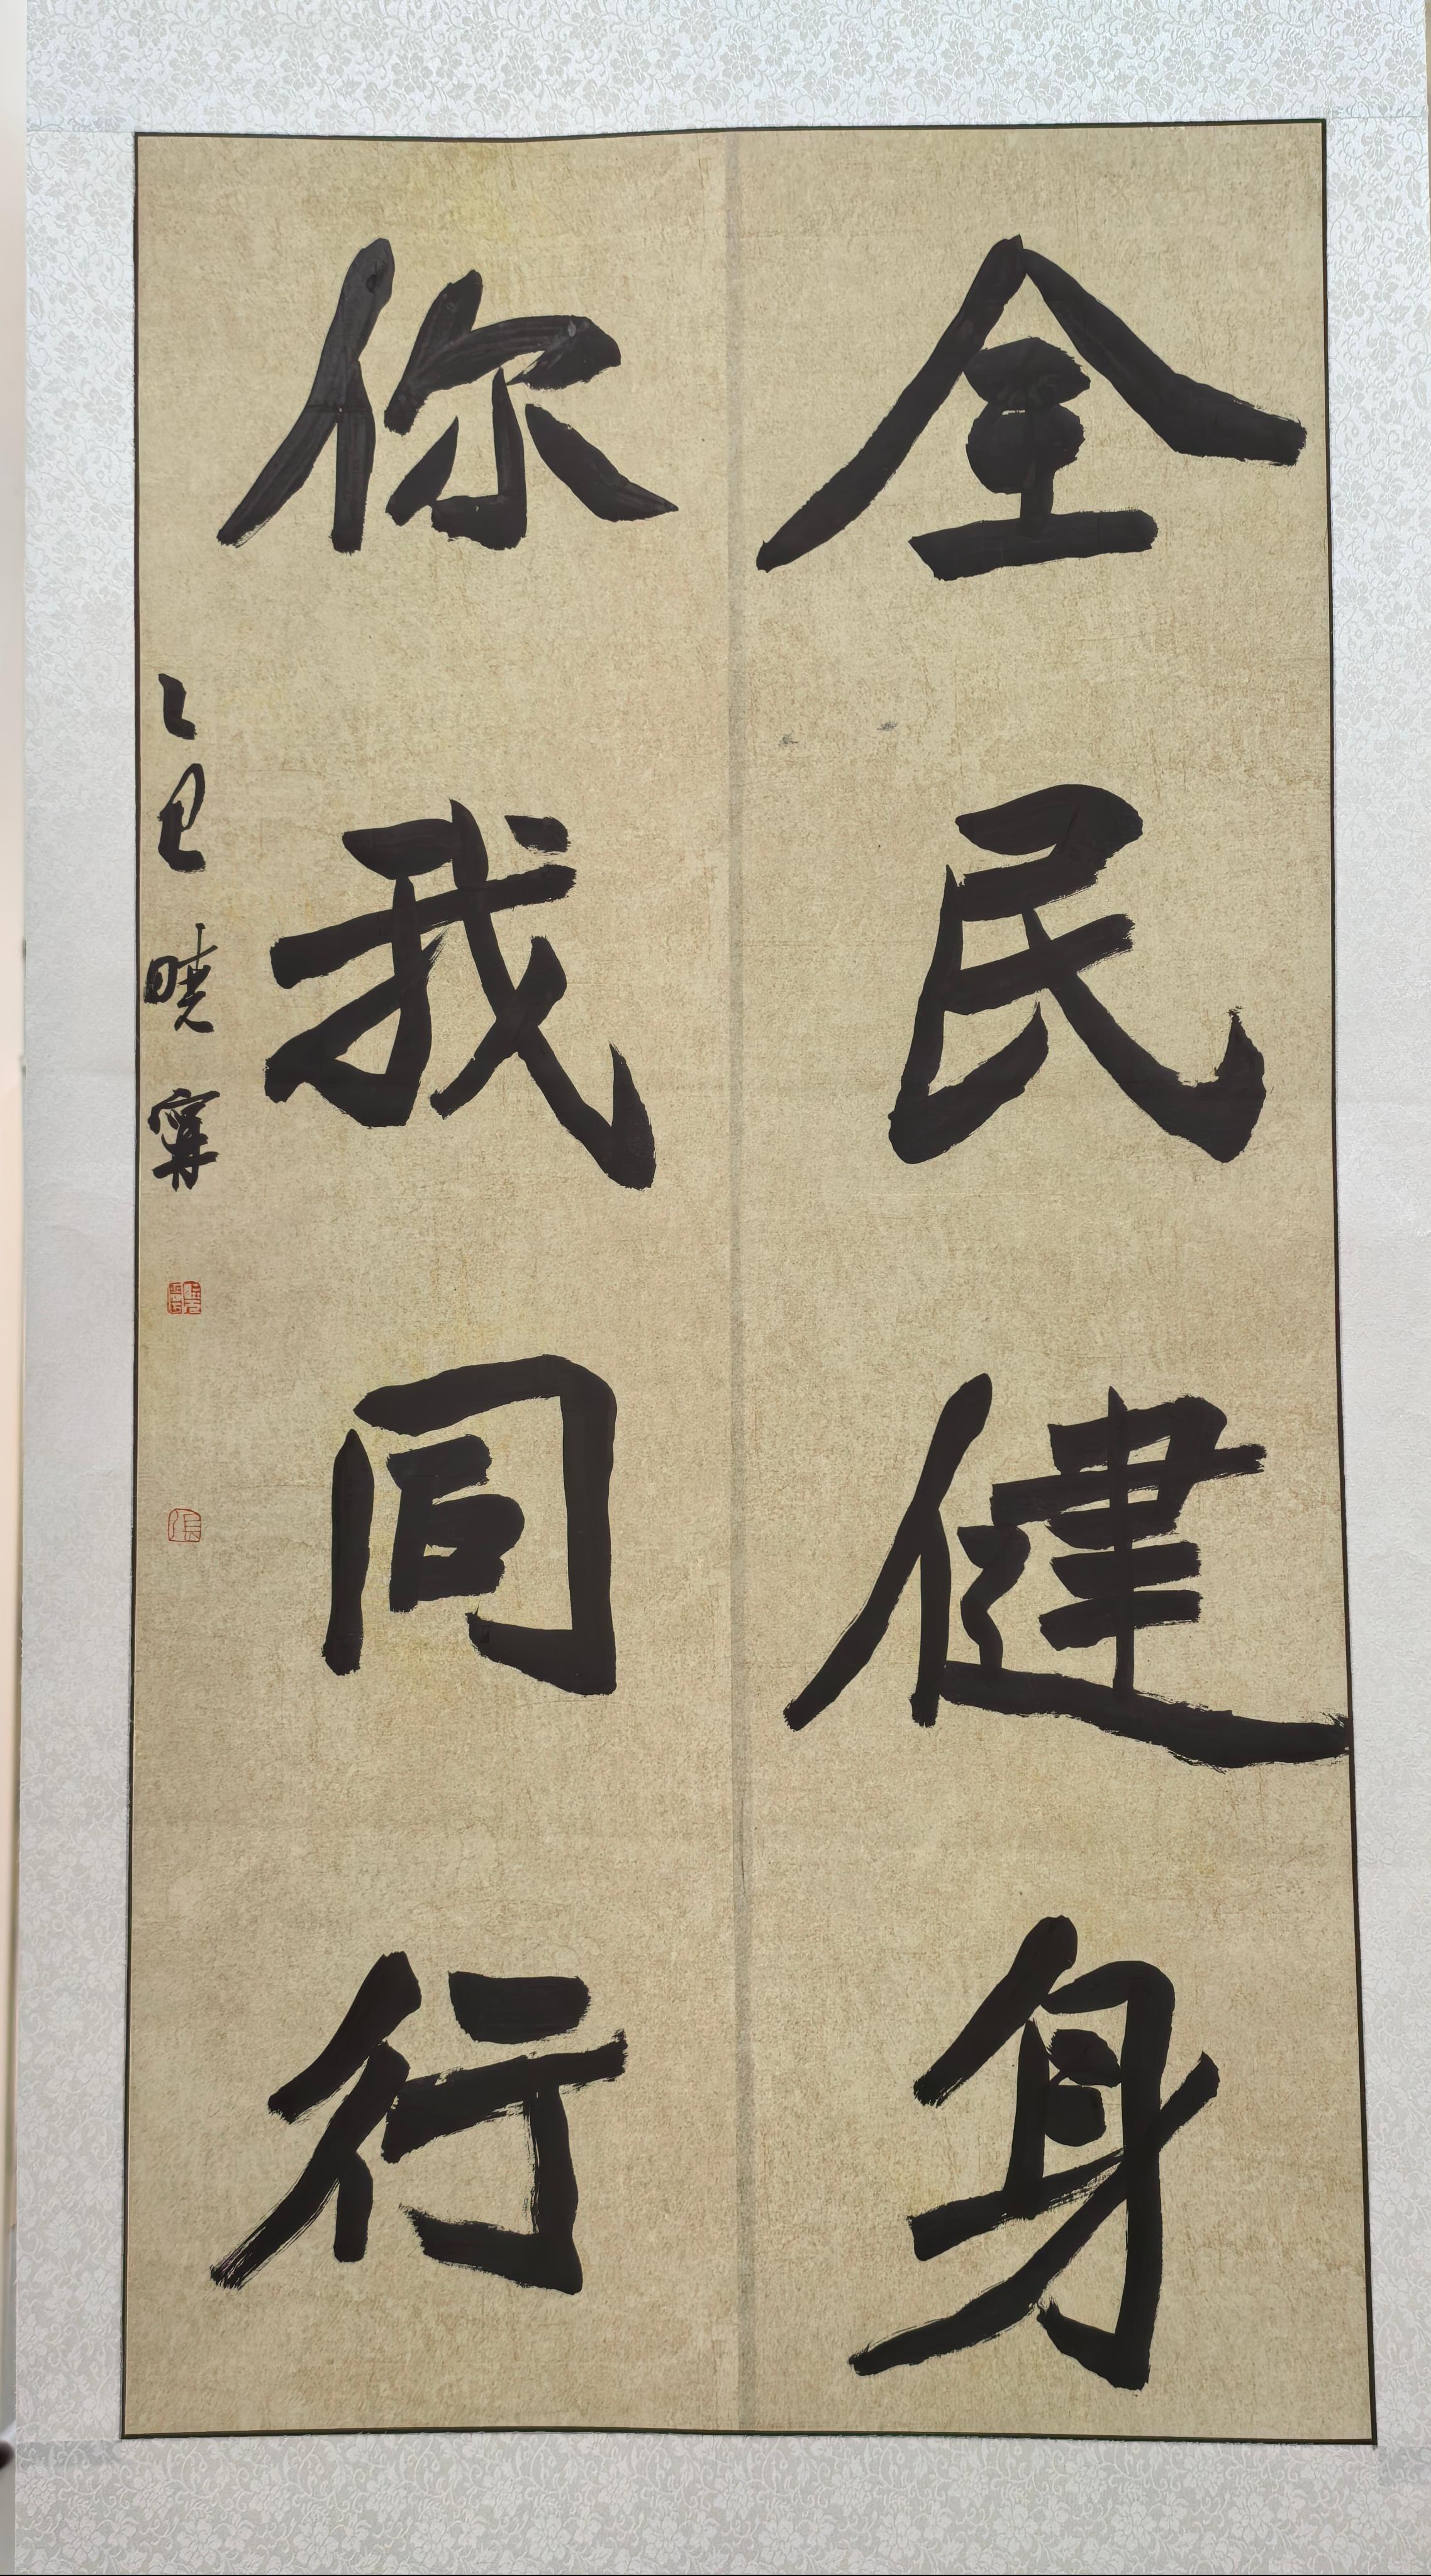 全民健身
你我同行
乙巳 曉寧